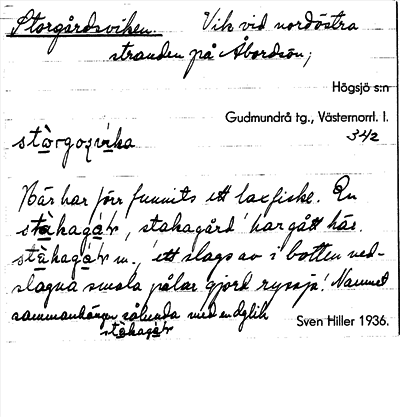 Storgårdsviken. Vik vid nordöstra
stranden på Åbordsön;
Högsjö s:n
Gudmundrå tg., Västernorrl. l.
3 4/2
Här har förr funnits ett laxfiske. En
stakagård har gått här.
m. 'ett slags av i botten ned-
slagna smala pålar gjord ryssja'. Namnet
sammanhänger sålunda med en dylik
Sven Hiller 1936.